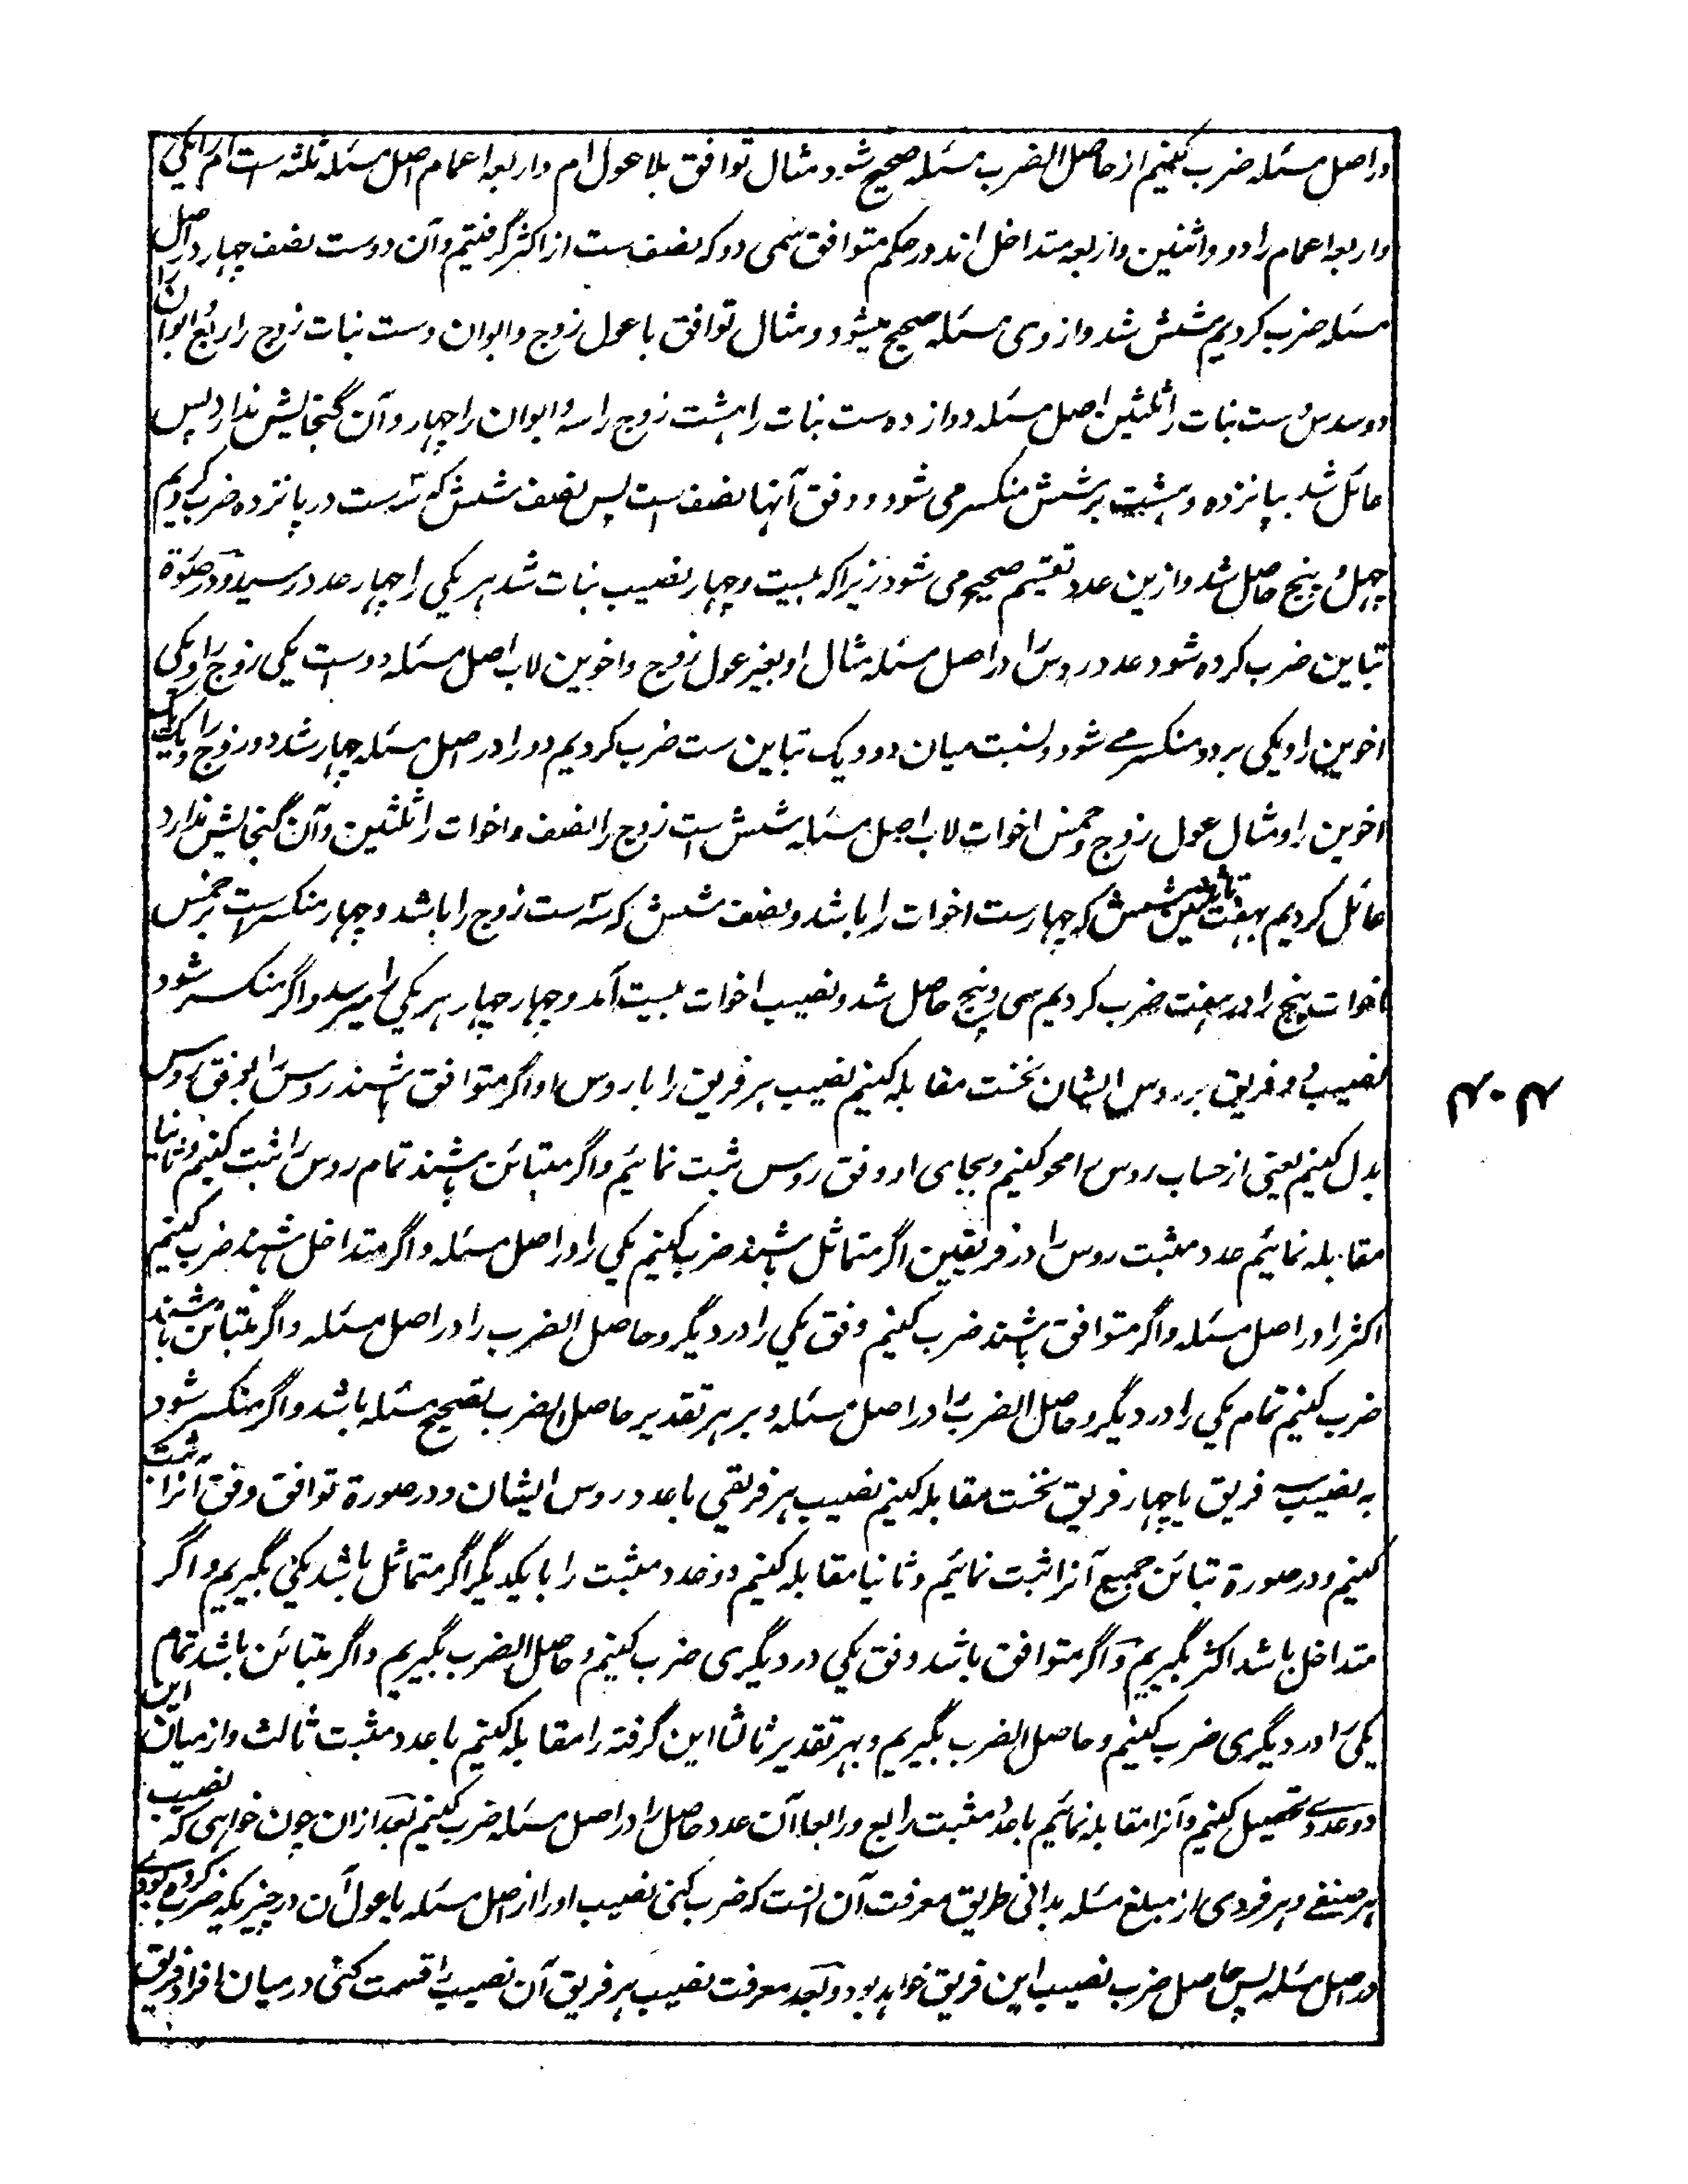 در اصل مسئله ضرب کنیم از حاصل الضرب مسئله صحیح شود مثال توافق بلا عول ام و اربعه اعمام اصل مسئله ثلثه است ام را یکی
و اربعه اعمام را دو و اثنین و اربعه متداخل اند در حکم متوافق سمی دو که نصف ست از اکثر گرفتیم و آن دوست نصف چهار در اصل
مسئله ضرب کردیم شش شد و از وی مسئله صحیح میشود و مثال توافق با عول زوج و ابوان و ست بنات زوج را ربع و ابوان را
دو سدس و ست بنات را ثلثین اصل مسئله دوازده ست بنات را هشت زوج را سه و ابوان را چهار و آن گنجایش ندارد پس
عائل شد بپانزده و هشت بر شش منکسر می شود و وفق آنها نصف است پس نصف شش که سه ست در پانزده ضرب کردیم
چهل و پنج حاصل شد و ازین عدد تقسیم صحیح می شود زیرا که بیست و چهار نصیب بنات شد هر یکی را چهار عدد رسید و در صورة
تباین ضرب کرده شود عدد روس را در اصل مسئله مثال او بغیر عول زوج و اخوین لاب اصل مسئله دوست یکی زوج را و یکی
اخوین را و یکی بر دو منکسر مے شود و نسبت میان دو و یک تباین ست ضرب کردیم دو را در اصل مسئله چهار شد دو زوج را و یک یک
اخوین را و مثال عول زوج و خمس اخوات لاب اصل مسئله شش است زوج را نصف و اخوات را ثلثین و آن گنجایش ندارد
عائل کردیم بهفت تا ثلثین شش که چهار ست اخوات را باشد و نصف شش که سه ست زوج را باشد و چهار منکسر ست بر خمس
اخوات پنج را در هفت ضرب کردیم سی و پنج حاصل شد و نصیب اخوات بیست آمد و چهار چهار هر یکی را میرسد و اگر منکسر شود
نصیب دو فریق بر روس ایشان نخست مقابله کنیم نصیب هر فریق را با روس او اگر متوافق باشند روس را بوفق روس
بدل کنیم یعنی از حساب روس را محو کنیم و بجای او وفق روس ثبت نمائیم و اگر متبائن باشند تمام روس را ثبت کنیم و ثانیا
مقابله نمائیم عدد مثبت روس را در فریقین اگر متماثل باشند ضرب کنیم یکی را در اصل مسئله و اگر متداخل باشند ضرب کنیم
اکثر را در اصل مسئله و اگر متوافق باشند ضرب کنیم وفق یکی را در دیگر و حاصل الضرب را در اصل مسئله و اگر متبائن باشند
ضرب کنیم تمام یکی را در دیگر و حاصل الضرب را در اصل مسئله و بر هر تقدیر حاصل الضرب تصحیح مسئله باشد و اگر منکسر شود
به نصیب سه فریق یا چهار فریق نخست مقابله کنیم نصیب هر فریقی با عدد روس ایشان و در صورة توافق وفق آنرا ثبت
کنیم و در صورة تبائن جمیع آنرا ثبت نمائیم و ثانیا مقابله کنیم دو عدد مثبت را با یکدیگر اگر متماثل باشد یکی بگیریم و اگر
متداخل باشد اکثر بگیریم و اگر متوافق باشد وفق یکی در دیگری ضرب کنیم و حاصل الضرب بگیریم و اگر متبائن باشد تمام
یکی را در دیگری ضرب کنیم و حاصل الضرب بگیریم و بهر تقدیر ثالثا این گرفته را مقابله کنیم با عدد مثبت ثالث و از میان این
دو عددے تحصیل کنیم و آنرا مقابله نمائیم با عدد مثبت رابع و رابعا آن عدد حاصل را در اصل مسئله ضرب کنیم بعد ازان چون خواهی که نصیب
هر صنفے و هر فردی از مبلغ مسئله بدانی طریق معرفت آن انست که ضرب کنی نصیب او را از اصل مسئله یا عول آن در چیزیکه ضرب کرده بودے
در اصل مسئله پس حاصل ضرب نصیب این فریق خواهد بود و بعد معرفت نصیب هر فریق آن نصیب را قسمت کنی در میان افراد فریق